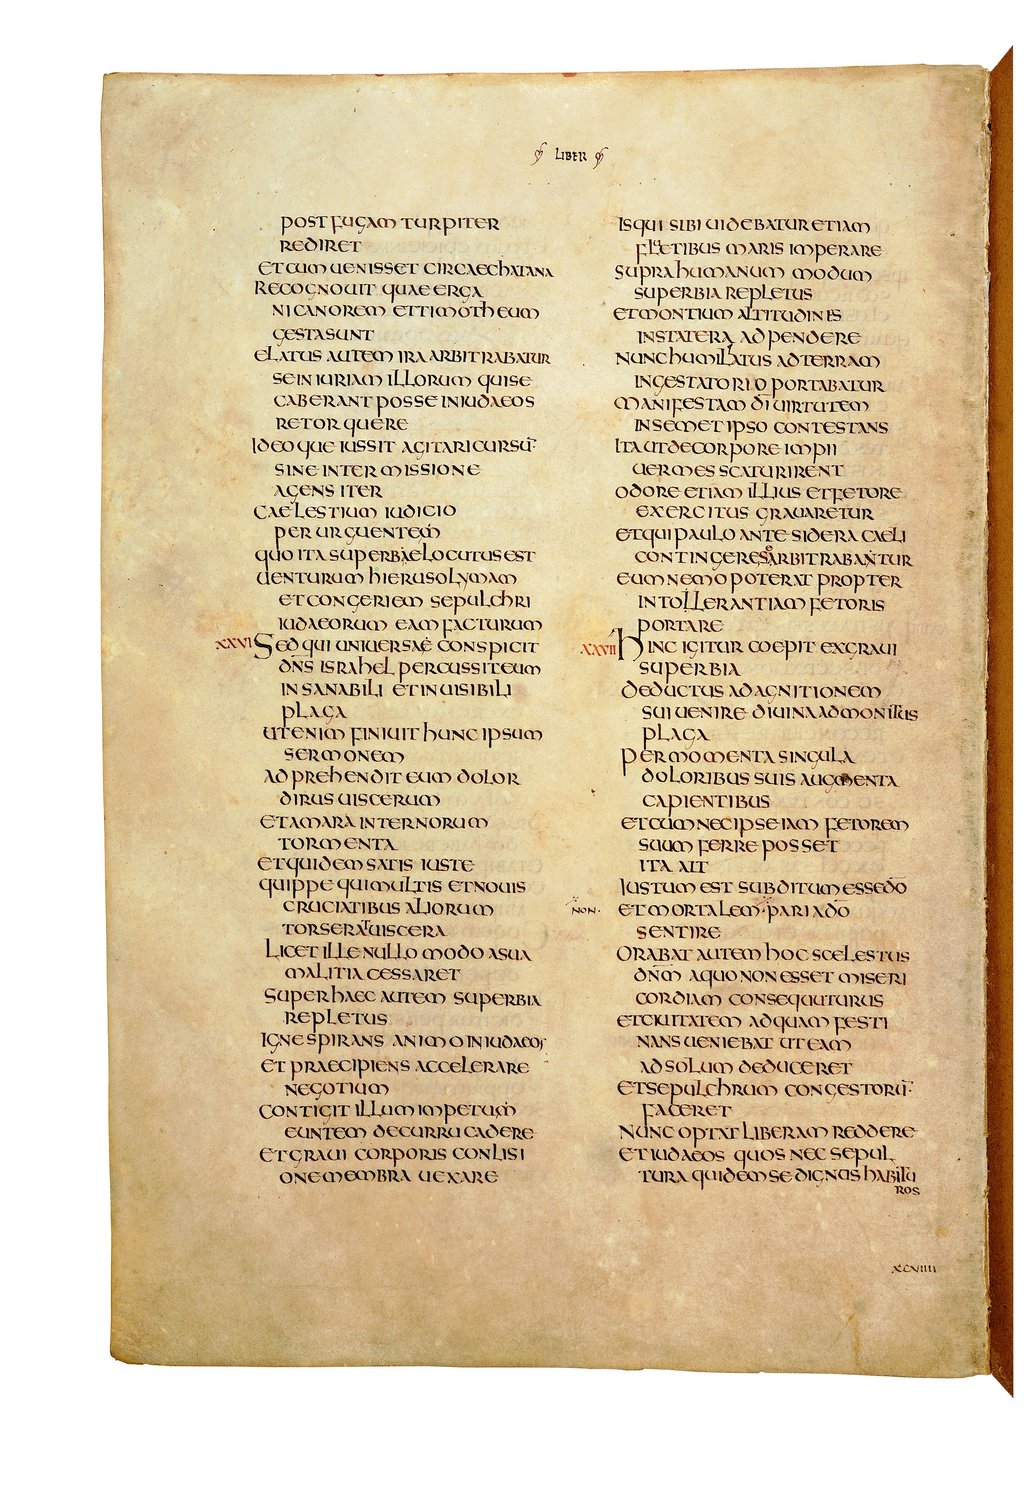 LIBER
POST FUGAM TURPITER
REDIRET
ET CUM UENISSET CIRCA ECHATANA
RECOGNOUIT QUAE ERGA
NICANOREM ET TIMOTHEUM
GESTA SUNT
ELATUS AUTEM IRA ARBITRABATUR
SE INIURIAM ILLORUM QUI SE
CABERANT POSSE IN IUDAEOS
RETORQUERE
IDEOQUE IUSSIT AGITARI CURSŪ
SINE INTERMISSIONE
AGENS ITER
CAELESTIUM IUDICIO
PERURGUENTEM
QUO ITA SUPERBAE LOCUTUS EST
UENTURUM HIERUSOLYMAM
ET CONGERIEM SEPULCHRI
IUDAEORUM EAM FACTURUM
XXVI SED QUI UNIUERSAE CONSPICIT
DN̄S ISRAHEL PERCUSSIT EUM
INSANABILI ET INUISIBILI
PLAGA
UT ENIM FINIUIT HUNC IPSUM
SERMONEM
ADPREHENDIT EUM DOLOR
DIRUS UISCERUM
ET AMARA INTERNORUM
TORMENTA
ET QUIDEM SATIS IUSTE
QUIPPE QUI MULTIS ET NOUIS
CRUCIATIBUS ALIORUM
TORSERAT UISCERA
LICET ILLE NULLO MODO A SUA
MALITIA CESSARET
SUPER HAEC AUTEM SUPERBIA
REPLETUS
IGNE SPIRANS ANIMO IN IUDAEOS
ET PRAECIPIENS ACCELERARE
NEGOTIUM
CONTIGIT ILLUM IMPETUM
EUNTEM DE CURRU CADERE
ET GRAUI CORPORIS CONLISI
ONE MEMBRA UEXARE
IS QUI SIBI UIDEBATUR ETIAM
FLETIBUS MARIS IMPERARE
SUPRA HUMANUM MODUM
SUPERBIA REPLETUS
ET MONTIUM ALTITUDINES
IN STATERA ADPENDERE
NUNC HUMILIATUS AD TERRAM
IN GESTATORIO PORTABATUR
MANIFESTAM DĪ UIRTUTEM
IN SEMET IPSO CONTESTANS
ITA UT DE CORPORE IMPII
UERMES SCATURIRENT
ODORE ETIAM ILLIUS ET FETORE
EXERCITUS GRAUARETUR
ET QUI PAULO ANTE SIDERA CAELI
CONTINGERE SE ARBITRABATUR
EUM NEMO POTERAT PROPTER
INTOLLERANTIAM FETORIS
PORTARE
XXVII HINC IGITUR COEPIT EX GRAUI
SUPERBIA
DEDUCTUS AD AGNITIONEM
SUI UENIRE DIUINA ADMONITUS
PLAGA
PER MOMENTA SINGULA
DOLORIBUS SUIS AUGMENTA
CAPIENTIBUS
ET CUM NEC IPSE IAM FETOREM
SUUM FERRE POSSET
ITA AIT
IUSTUM EST SUBDITUM ESSE DŌ
NON· ET MORTALEM· PARIA DŌ
SENTIRE
ORABAT AUTEM HOC SCELESTUS
DN̄M A QUO NON ESSET MISERI
CORDIAM CONSEQUUTURUS
ET CIUITATEM AD QUAM FESTI
NANS UENIEBAT UT EAM
AD SOLUM DEDUCERET
ET SEPULCHRUM CONGESTORŪ
FACERET
NUNC OPTAT LIBERAM REDDERE
ET IUDAEOS QUOS NEC SEPUL
TURA QUIDEM SE DIGNUS HABITU
ROS
XCVIIII